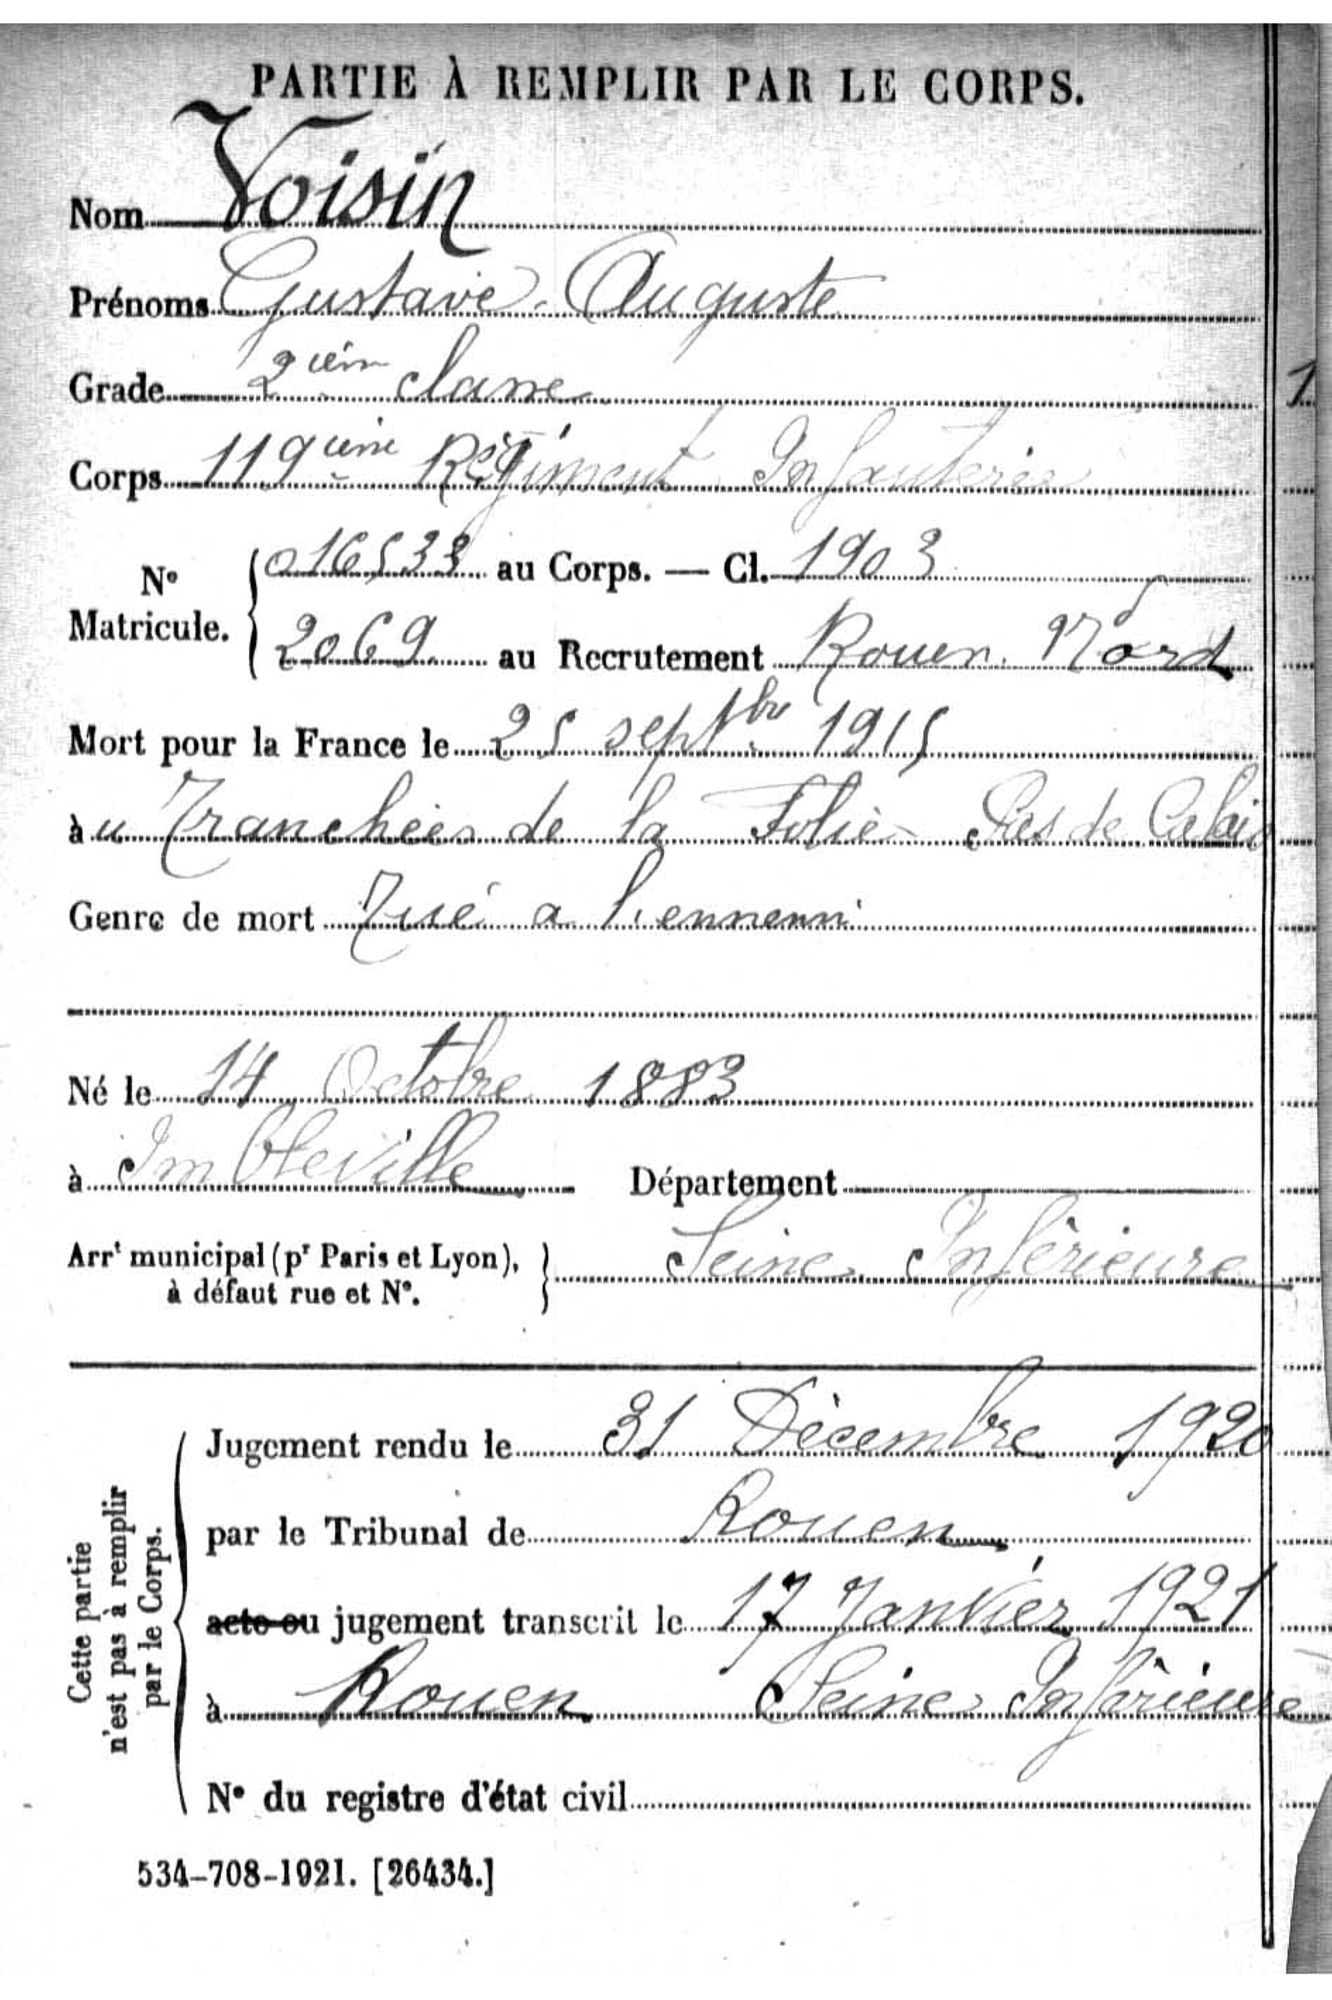 PARTIE À REMPLIR PAR LE CORPS.
Nom Voisin
Prénoms Gustave Auguste
Grade 2ième classe
Corps 119ième Régiment Infanterie
No Matricule. 016533 au Corps. — Cl. 1903
2069 au Recrutement Rouen Nord
Mort pour la France le 25 septbre 1915
àu Tranchées de la Folie Pas de Calais
Genre de mort Tué a l'ennemi
Né le 14 Octobre 1883
à Imbleville Département
Arrt municipal (pr Paris et Lyon), à défaut rue et No. Seine Inférieure
Cette partie n'est pas à remplir par le Corps.
Jugement rendu le 31 Décembre 1920
par le Tribunal de Rouen
acte ou jugement transcrit le 17 Janvier 1921
à Rouen Seine Inférieure
No du registre d'état civil
534-708-1921. [26434.]